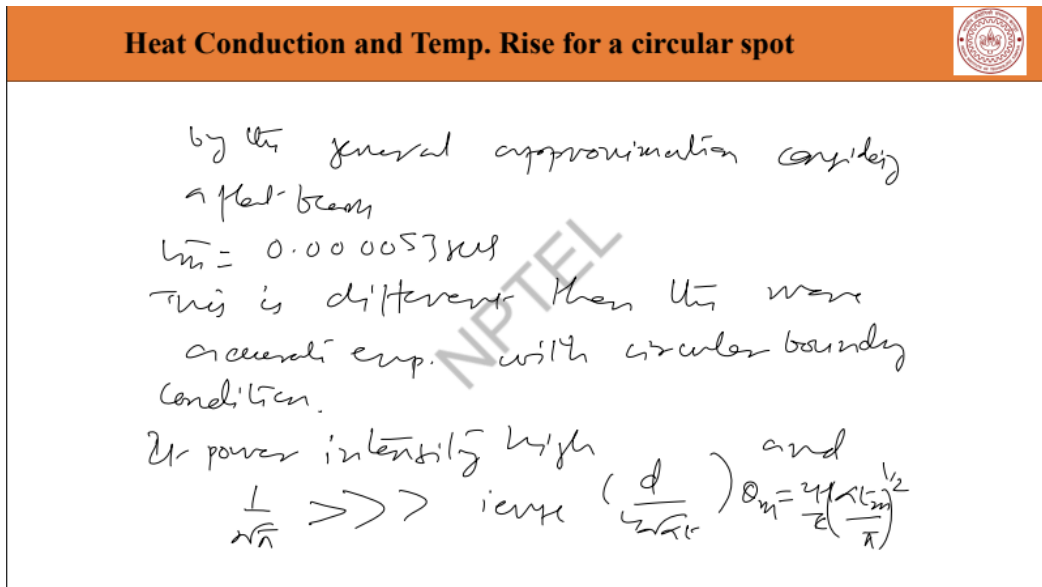 Heat Conduction and Temp. Rise for a circular spot
by the general approximation considering
a flat beam
tm = 0.000053 secs
This is different than the more
accurate exp. with circular boundry
condition.
If power intensity high and
1/√π >>> ierfc (d/√αt) θm = (αtm/π)^1/2
NPTEL